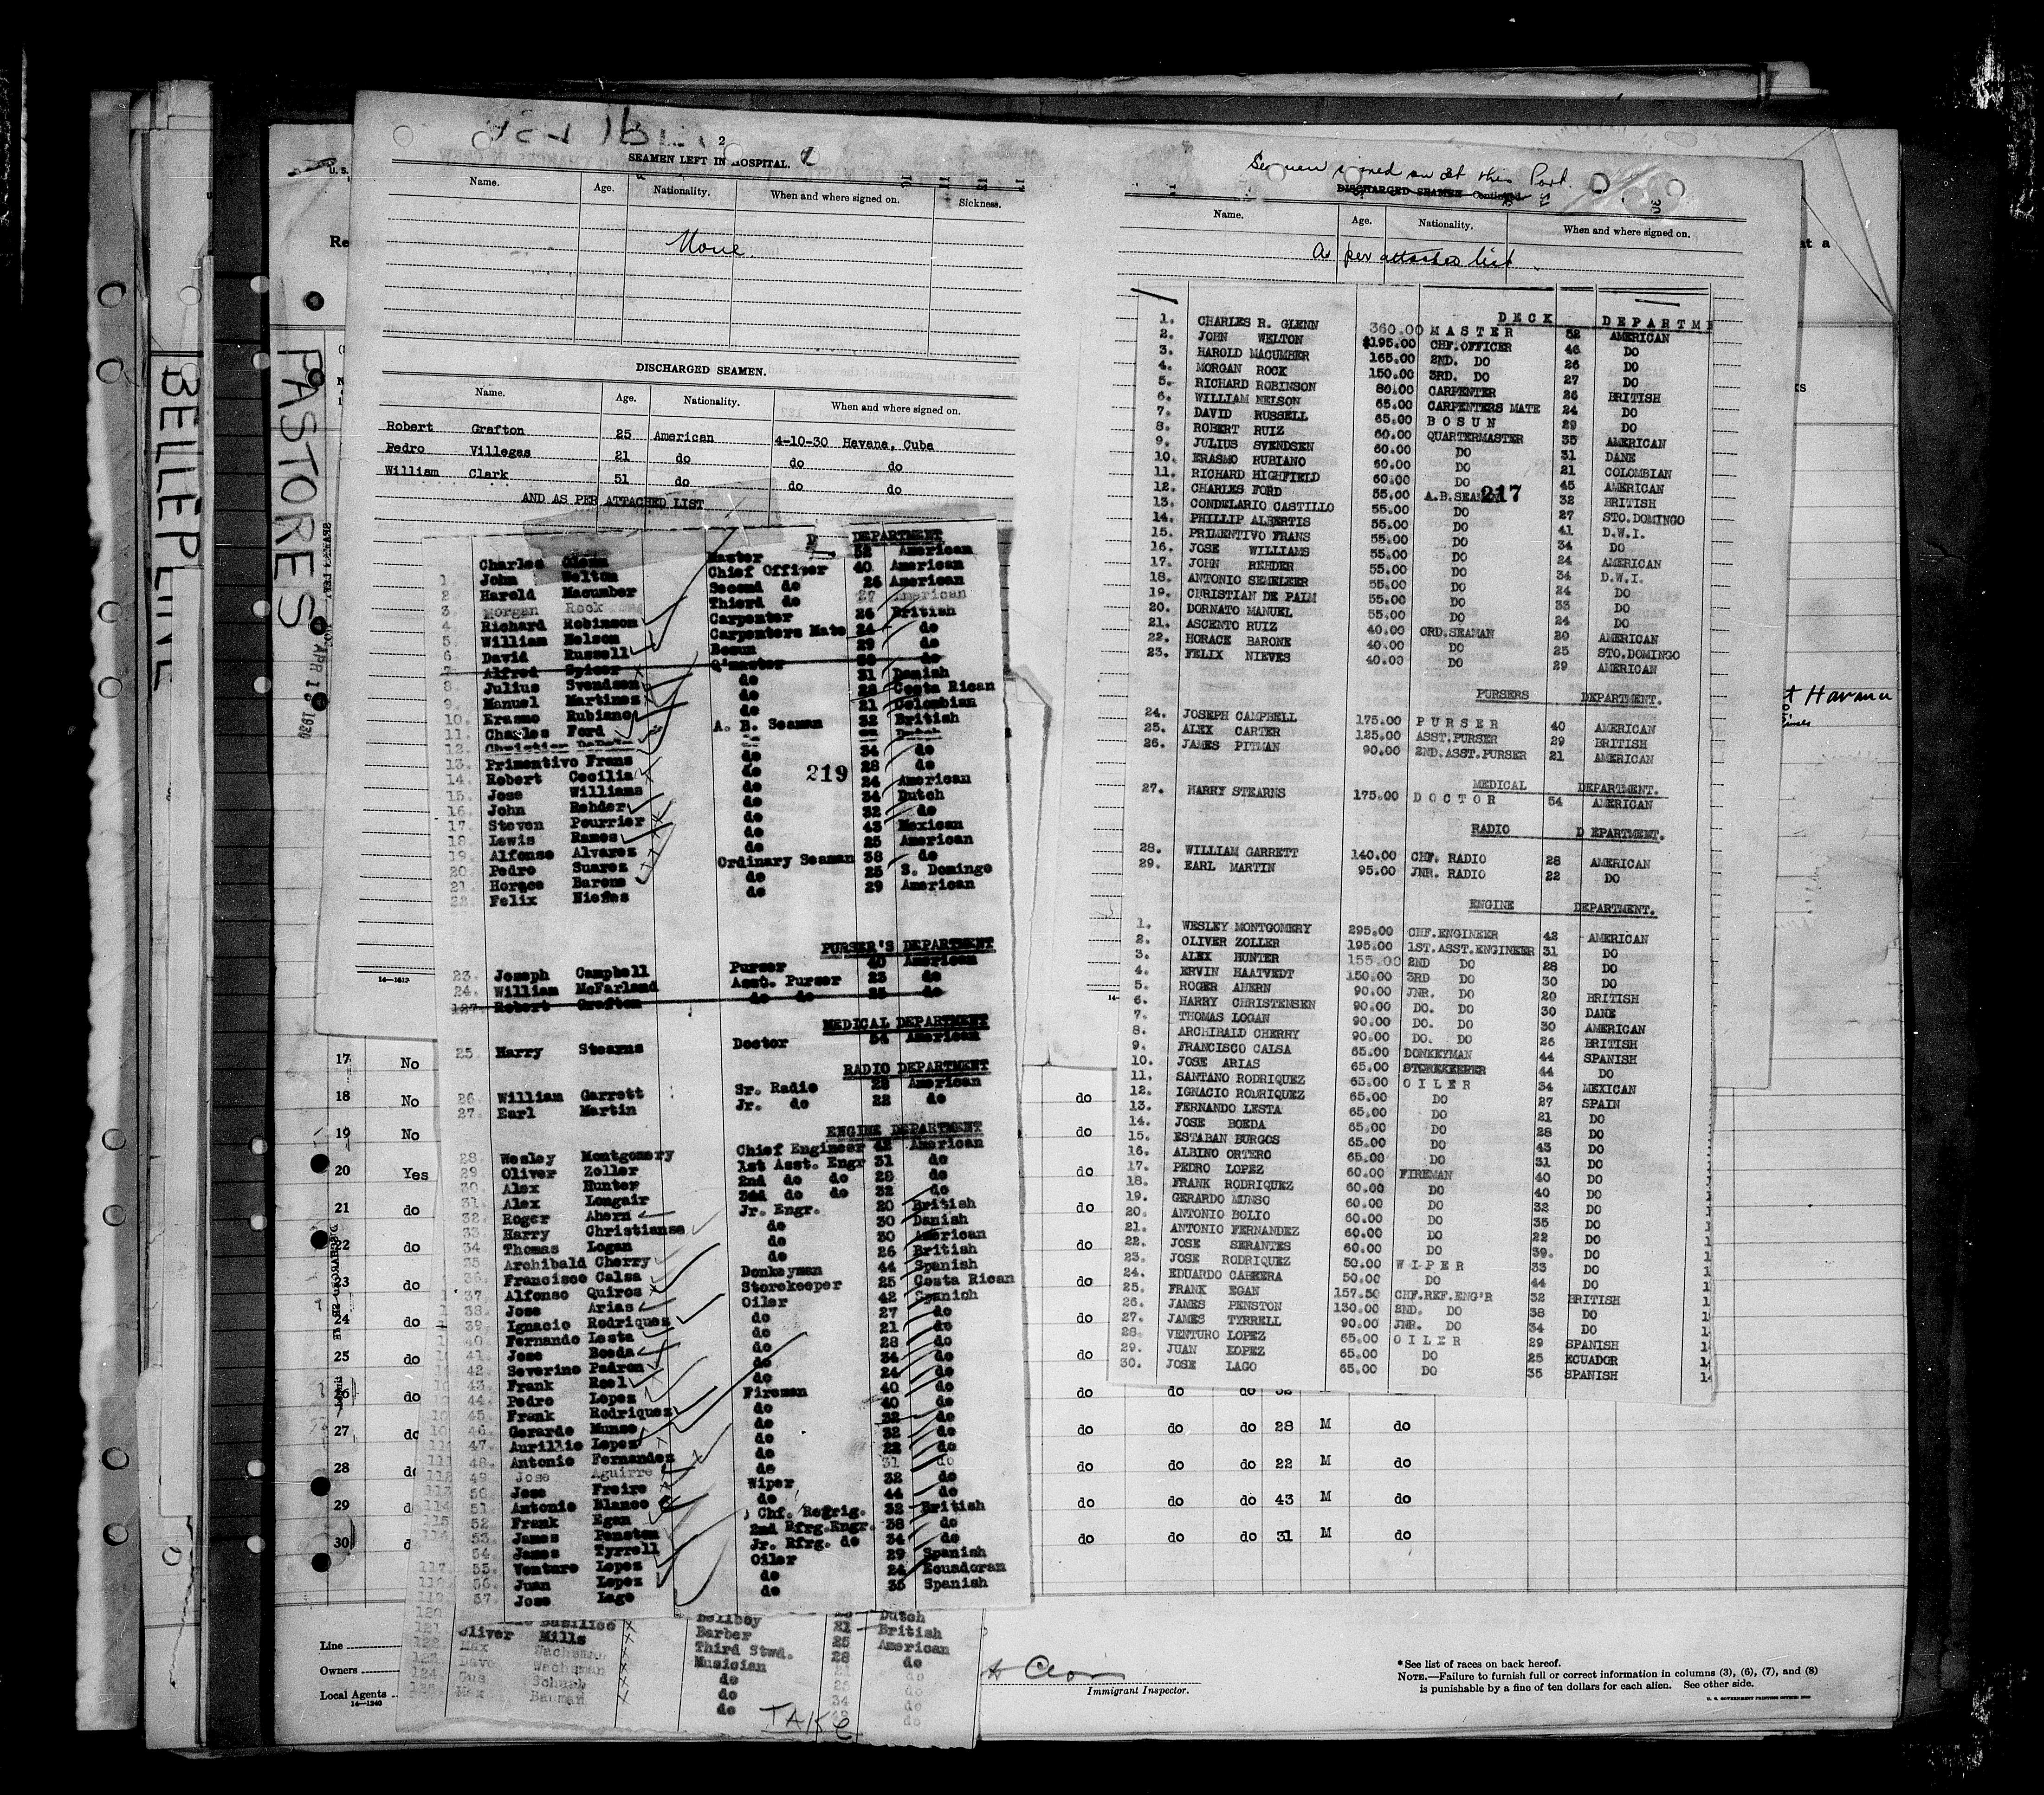 BELLEP LINE
PASTORES
APR 1 1930
2
SEAMEN LEFT IN HOSPITAL.
Name. Age. Nationality. When and where signed on. Sickness.
None.
DISCHARGED SEAMEN.
Name. Age. Nationality. When and where signed on.
Robert Grafton 25 American 4-10-30 Havana, Cuba
Pedro Villegas 21 do do do
William Clark 51 do do do
AND AS PER ATTACHED LIST
D DEPARTMENT
Charles Glenn Master 52 American
1. John Welton Chief Officer 40 American
2. Harold Macumber Second do 26 American
3. Morgan Rock Thierd do 27 American
4. Richard Robinson Carpenter 26 British
5. William Nelson Carpenters Mate 24 do
6 David Russell Bosun 29 do
7. Alfred Spicer Q'master do
8. Julius Svendsen do 31 Danish
9. Manuel Martinez do 28 Costa Rican
10. Erasmo Rubiano do 21 Colombian
11. Charles Ford A. B. Seaman 32 British
12. Christian DePalm Dutch
13. Primentivo Frans do 34 do
14. Robert Cecilia do 28 do
15. Jose Williams do 24 American
16. John Rehder do 34 Dutch
17. Steven Pourrier do 32 do
18. Lewis Rames do 43 Mexican
19. Alfonso Alvarez do 25 American
20. Pedro Suarez Ordinary Seaman 38 do
21. Horace Barone do 25 S. Domingo
22. Felix Nieves do 29 American
219
PURSER'S DEPARTMENT
23. Joseph Campbell Purser 40 American
24. William McFarland Asst. Purser 23 do
127 Robert Grafton do do 25 do
MEDICAL DEPARTMENT
25. Harry Stearns Doctor 54 American
RADIO DEPARTMENT
26. William Garrett Sr. Radio 28 American
27. Earl Martin Jr. do 22 do
ENGINE DEPARTMENT
28. Wesley Montgomery Chief Engineer 42 American
29 Oliver Zoller 1st Asst. Engr 31 do
30. Alex Hunter 2nd do do 28 do
31. Alex Longair 3dd do do 32 do
32. Roger Ahern Jr. Engr. 20 British
33 Harry Christianse do 30 Danish
34 Thomas Logan do 30 American
35 Archibald Cherry do 26 British
36. Francisco Calsa Donkeyman 44 Spanish
37. Alfonso Quiros Storekeeper 25 Costa Rican
38. Jose Arias Oiler 42 Spanich
39. Ignacio Rodriquez do 27 do
40. Fernando Lesta do 21 do
41. Jose Boeda do 28 do
42. Severino Padron do 34 do
43. Frank Reel do 24 do
44. Pedro Lopez Fireman 40 do
45. Frank Rodriquez do 40 do
46. Gerardo Munso do 32 do
47. Aurillio Lopez do 32 do
48. Antonio Fernandez do 22 do
49. Jose Aguirre do 31 do
50. Jose Freire Wiper 32 do
51. Antonio Blanco do 44 do
52 Frank Egan Chf. Refrig. 32 British
53. James Penston 2nd Rfrg.Engr. 38 do
54. James Tyrrell Jr. Rfrg. do 34 do
55. Venturo Lopez Oiler 29 Spanish
56. Juan Lopez do 24 Ecuadoran
57. Jose Lago do 35 Spanish
Basilico Bellboy Dutch
Oliver Mills Barber 21 British
Max Wachsman Third Stwd. 25 American
Dave Wachsman Musician 28 do
Gus Schuab do do
Max Bauman do do
TAKE
Seamen signed on at this Port.
DISCHARGED SEAMEN—Continued.
Name. Age. Nationality. When and where signed on.
As per attached list.
DECK DEPARTME
1. CHARLES R. GLENN 360.00 MASTER 52 AMERICAN
2. JOHN WELTON $195.00 CHF.OFFICER 46 DO
3. HAROLD MACUMBER 165.00 2ND. DO 26 DO
4. MORGAN ROCK 150.00 3RD. DO 27 DO
5. RICHARD ROBINSON 80.00 CARPENTER 26 BRITISH
6. WILLIAM NELSON 65.00 CARPENTERS MATE 24 DO
7. DAVID RUSSELL 65.00 BOSUN 29 DO
8. ROBERT RUIZ 60.00 QUARTERMASTER 35 AMERICAN
9. JULIUS SVENDSEN 60.00 DO 31 DANE
10. ERASMO RUBIANO 60.00 DO 21 COLOMBIAN
11. RICHARD HIGHFIELD 60.00 DO 45 AMERICAN
12. CHARLES FORD 55.00 A.B.SEAMAN 32 BRITISH
217
13. CONDELARIO CASTILLO 55.00 DO 27 STO.DOMINGO
14. PHILLIP ALBERTIS 55.00 DO 41 D.W.I.
15. PRIMENTIVO FRANS 55.00 DO 34 DO
16. JOSE WILLIAMS 55.00 DO 24 AMERICAN
17. JOHN REHDER 55.00 DO 34 D.W.I.
18. ANTONIO SEMELEER 55.00 DO 24 DO
19. CHRISTIAN DE PALM 55.00 DO 33 DO
20. DORNATO MANUEL 55.00 DO 24 DO
21. ASCENTO RUIZ 40.00 ORD.SEAMAN 20 AMERICAN
22. HORACE BARONE 40.00 DO 25 STO.DOMINGO
23. FELIX NIEVES 40.00 DO 29 AMERICAN
PURSERS DEPARTMENT.
24. JOSEPH CAMPBELL 175.00 PURSER 40 AMERICAN
25. ALEX CARTER 125.00 ASST.PURSER 29 BRITISH
26. JAMES PITMAN 90.00 2ND.ASST.PURSER 21 AMERICAN
MEDICAL DEPARTMENT.
27. HARRY STEARNS 175.00 DOCTOR 54 AMERICAN
RADIO D EPARTMENT.
28. WILLIAM GARRETT 140.00 CHF. RADIO 28 AMERICAN
29. EARL MARTIN 95.00 JNR. RADIO 22 DO
ENGINE DEPARTMENT.
1. WESLEY MONTGOMERY 295.00 CHF.ENGINEER 42 AMERICAN
2. OLIVER ZOLLER 195.00 1ST.ASST.ENGINEER 31 DO
3. ALEX HUNTER 155.00 2ND DO 28 DO
4. ERVIN HAATVEDT 150.00 3RD DO 30 DO
5. ROGER AHERN 90.00 JNR. DO 20 BRITISH
6. HARRY CHRISTENSEN 90.00 DO. DO 30 DANE
7. THOMAS LOGAN 90.00 DO. DO 30 AMERICAN
8. ARCHIBALD CHERRY 90.00 DO. DO 26 BRITISH
9. FRANCISCO CALSA 65.00 DONKEYMAN 44 SPANISH
10. JOSE ARIAS 65.00 STOREKEEPER 44 DO
11. SANTANO RODRIQUEZ 65.00 OILER 34 MEXICAN
12. IGNACIO RODRIQUEZ 65.00 DO 27 SPAIN
13. FERNANDO LESTA 65.00 DO 21 DO
14. JOSE BOEDA 65.00 DO 28 DO
15. ESTABAN BURGOS 65.00 DO 43 DO
16. ALBINO ORTERO 65.00 DO 31 DO
17. PEDRO LOPEZ 60.00 FIREMAN 40 DO
18. FRANK RODRIQUEZ 60.00 DO 40 DO
19. GERARDO MUNSO 60.00 DO 32 DO
20. ANTONIO BOLIO 60.00 DO 35 DO
21. ANTONIO FERNANDEZ 60.00 DO 22 DO
22. JOSE SERANTES 60.00 DO 39. DO
23. JOSE RODRIQUEZ 50.00 WIPER 33 DO
24. EDUARDO CABRERA 50.00 DO 44 DO
25. FRANK EGAN 157.50 CHF.REF.ENG'R 32 BRITISH
26. JAMES PENSTON 130.00 2ND. DO 38 DO
27. JAMES TYRRELL 90.00 JNR. DO 34 DO
28. VENTURO LOPEZ 65.00 OILER 29 SPANISH
29. JUAN LOPEZ 65.00 DO 25 ECUADOR
30. JOSE LAGO 65.00 DO 35 SPANISH
Havana
17 No
18 No do
19 No do
20 Yes do
21 do do
22 do do
23 do do
24 do do
25 do do
26 do do do do
27 do do do do 28 M do
28 do do do do 22 M do
29 do do do 43 M do
30 do do do 31 M do
Line
Owners
Local Agents
14—1240
Immigrant Inspector.
*See list of races on back hereof.
NOTE.—Failure to furnish full or correct information in columns (3), (6), (7), and (8)
is punishable by a fine of ten dollars for each alien. See other side.